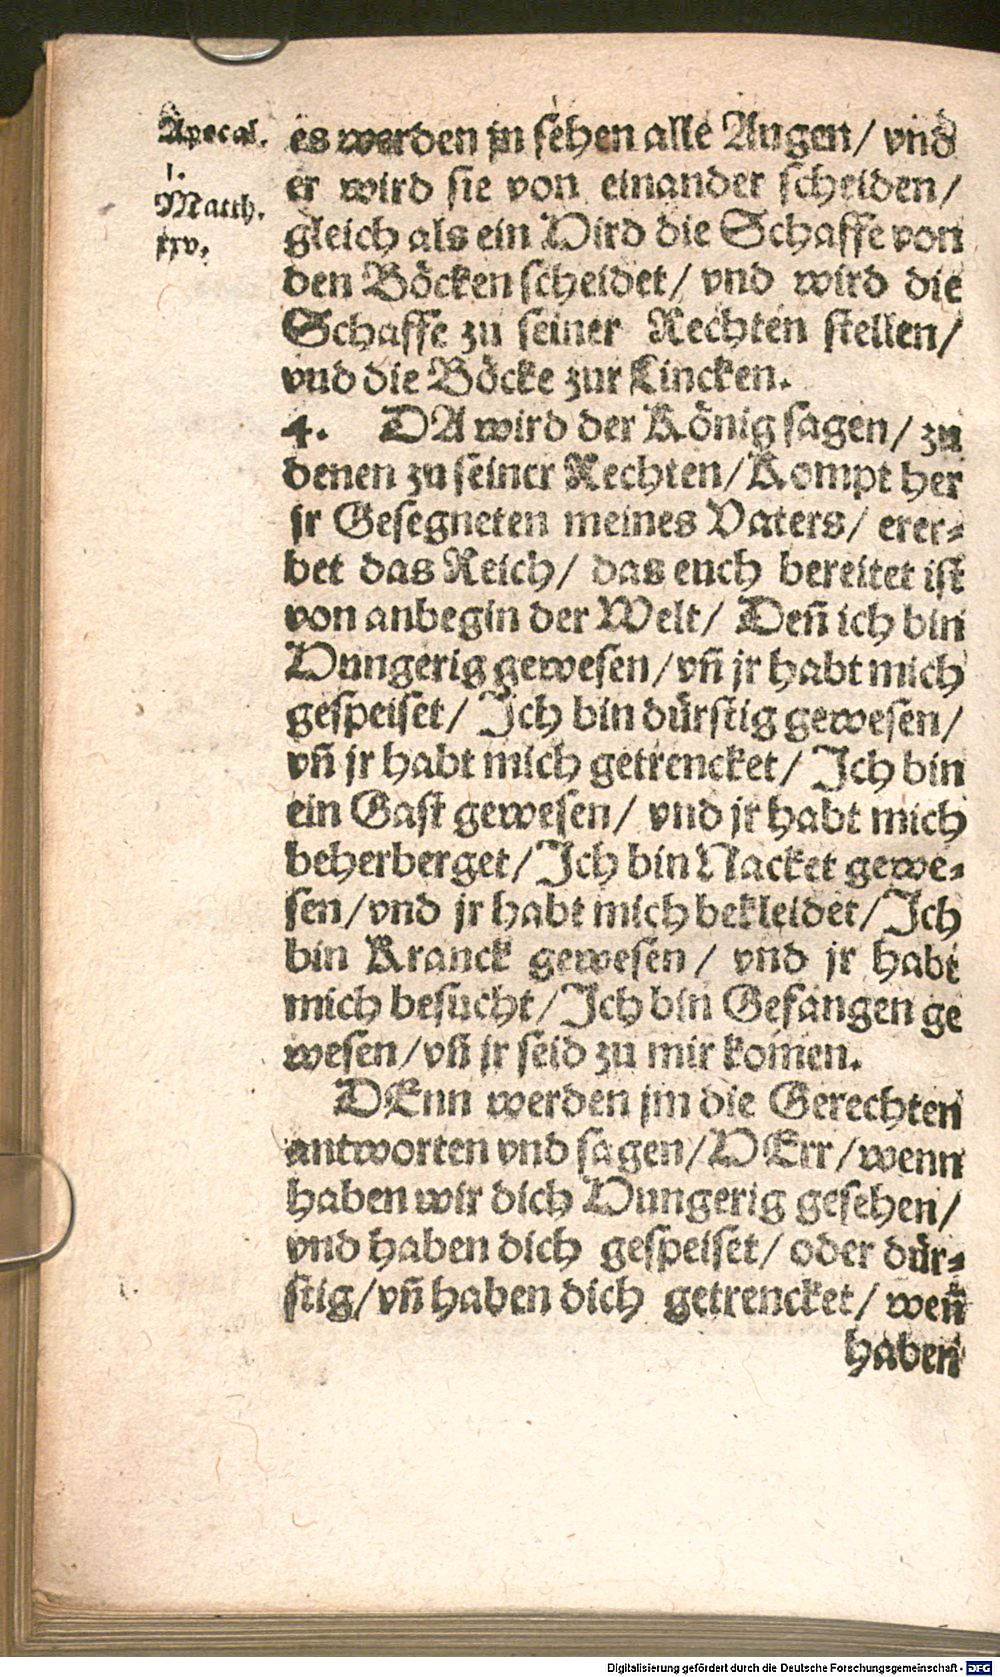 Apocal.
1.
Matth.
xxv.
es werden jn sehen alle Augen/ vnd
er wird sie von einander scheiden/
gleich als ein Hird die Schaffe von
den Böcken scheidet/ vnd wird die
Schaffe zu seiner Rechten stellen/
vnd die Böcke zur Lincken.
4. DA wird der König sagen/ zu
denen zu seiner Rechten/ Kompt her
jr Gesegneten meines Vaters/ erer-
bet das Reich/ das euch bereitet ist
von anbegin der Welt/ Deñ ich bin
Hungerig gewesen/ vñ jr habt mich
gespeiset/ Ich bin dürstig gewesen/
vñ jr habt mich getrencket/ Ich bin
ein Gast gewesen/ vnd jr habt mich
beherberget/ Ich bin Nacket gewe-
sen/ vnd jr habt mich bekleidet/ Ich
bin Kranck gewesen/ vnd jr habt
mich besucht/ Ich bin Gefangen ge
wesen/ vñ jr seid zu mir komen.
DEnn werden jm die Gerechten
antworten vnd sagen/ HErr/ wenn
haben wir dich Hungerig gesehen/
vnd haben dich gespeiset/ oder dür-
stig/ vñ haben dich getrencket/ weñ
haben
Digitalisierung gefördert durch die Deutsche Forschungsgemeinschaft - DFG